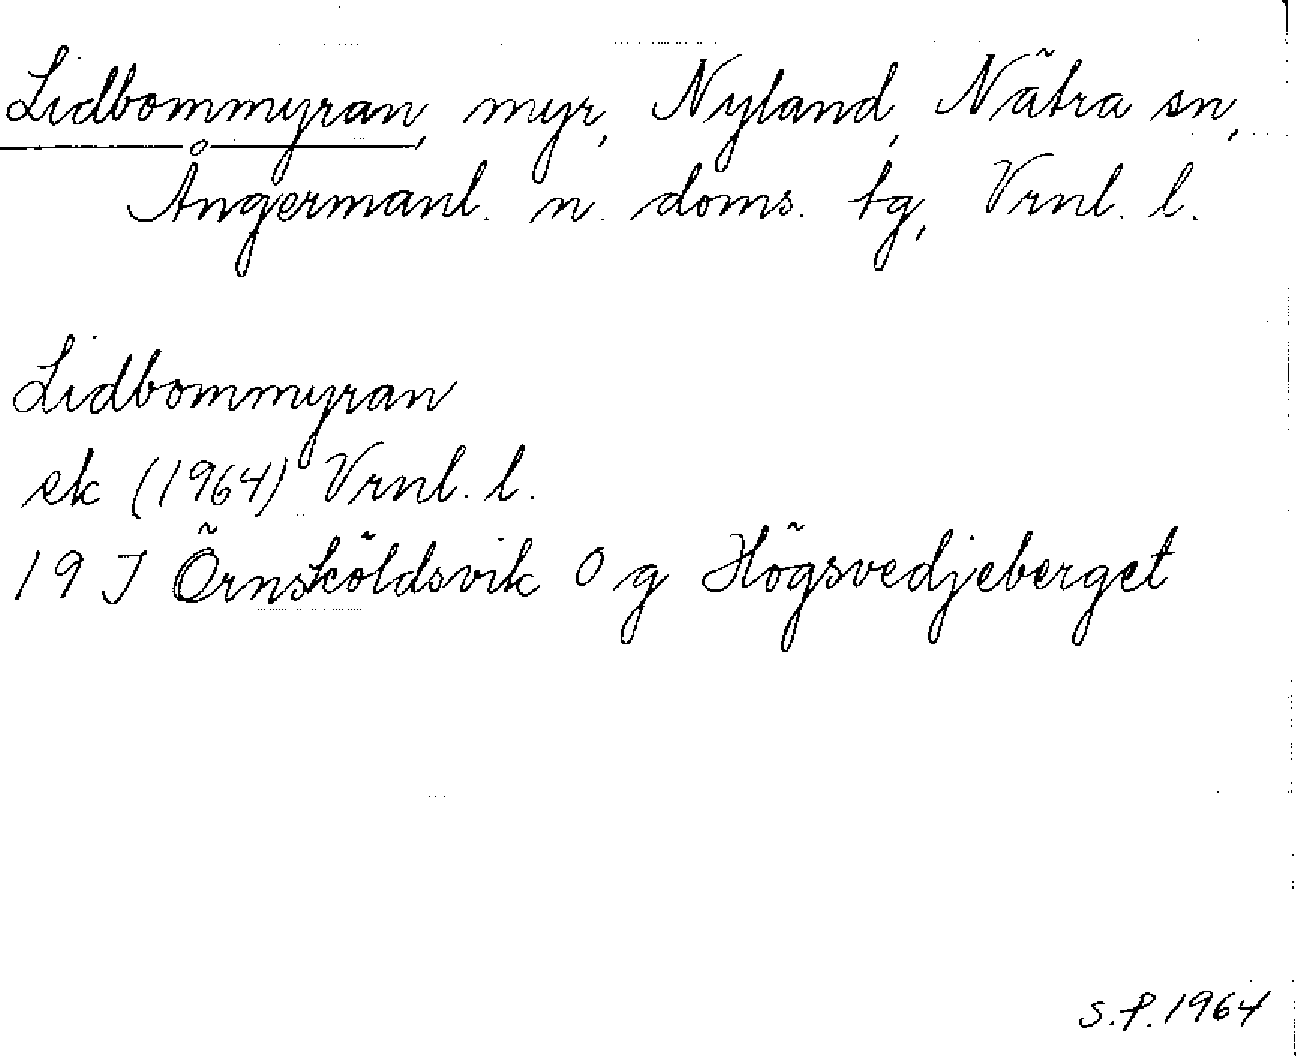 Lidbommyran, myr, Nyland, Nätra sn,
Ångermanl. n. doms. tg, Vrnl. l.
Lidbommyran
ek (1964) Vrnl. l.
19 J Örnsköldsvik O g Högsvedjeberget
S.P. 1964